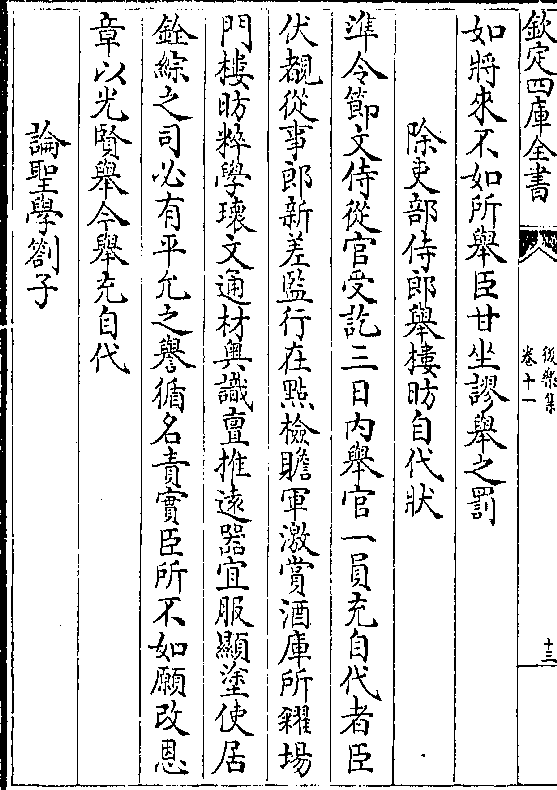 欽定四庫全書
後樂集
卷十一
十三
如將來不如所舉臣甘坐謬舉之罰
除吏部侍郎舉樓昉自代狀
準令節文侍從官受訖三日內舉官一員充自代者臣
伏覩從事郎新差監行在㸃檢贍軍激賞酒庫所糴場
門樓昉粹學瓌文通材輿識亶推逺器宜服顯塗使居
銓綜之司必有平允之譽循名責實臣所不如願改恩
章以光賢舉今舉充自代
論聖學劄子